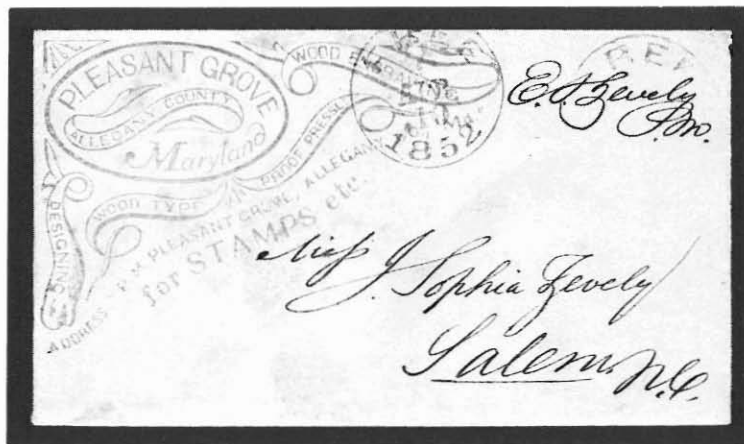 PLEASANT GROVE
ALLEGANY COUNTY
Maryland
WOOD ENGRAVING
DESIGNING
WOOD TYPE
PROOF PRESSES
ADDRESS P.M. PLEASANT GROVE, ALLEGANY
for STAMPS etc.
FREE
1852
E. S. Zevely
P.M.
Miss J. Sophia Zevely
Salem N.C.